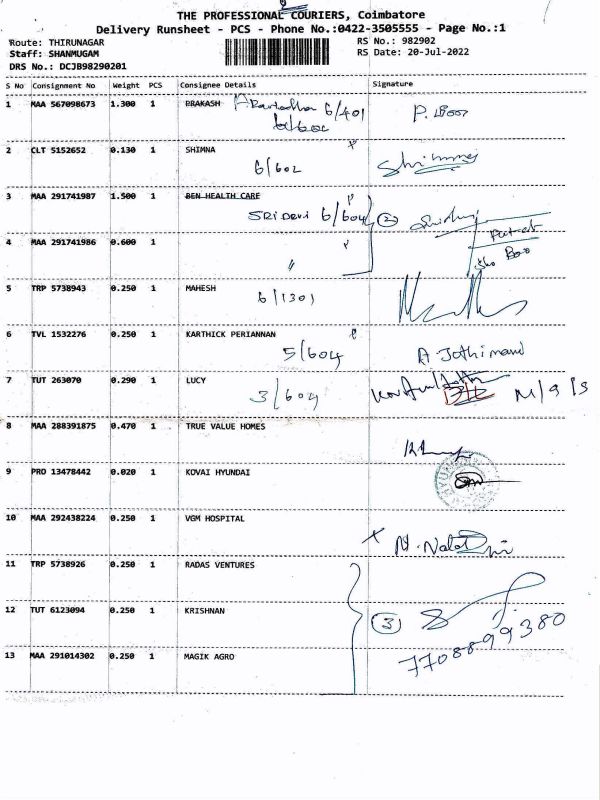 THE PROFESSIONAL COURIERS, Coimbatore
Delivery Runsheet - PCS - Phone No.:0422-3505555 - Page No.:1
Route: THIRUNAGAR RS No.: 982902
Staff: SHANMUGAM RS Date: 20-Jul-2022
DRS No.: DCJB98290201
S No Consignment No Weight PCS Consignee Details Signature
1 MAA 567098673 1.300 1 PRAKASH 6/401
2 CLT 5152652 0.130 1 SHIMNA
6/602
3 MAA 291741987 1.500 1 BEN HEALTH CARE
SRI DEVI 6/604 2
4 MAA 291741986 0.600 1
"
5 TRP 5738943 0.250 1 MAHESH
6/1301
6 TVL 1532276 0.250 1 KARTHICK PERIANNAN
5/604
7 TUT 263070 0.290 1 LUCY
3/604
8 MAA 288391875 0.470 1 TRUE VALUE HOMES
9 PRO 13478442 0.020 1 KOVAI HYUNDAI
10 MAA 292438224 0.250 1 VGM HOSPITAL
11 TRP 5738926 0.250 1 RADAS VENTURES
12 TUT 6123094 0.250 1 KRISHNAN
3
7708899380
13 MAA 291014302 0.250 1 MAGIK AGRO